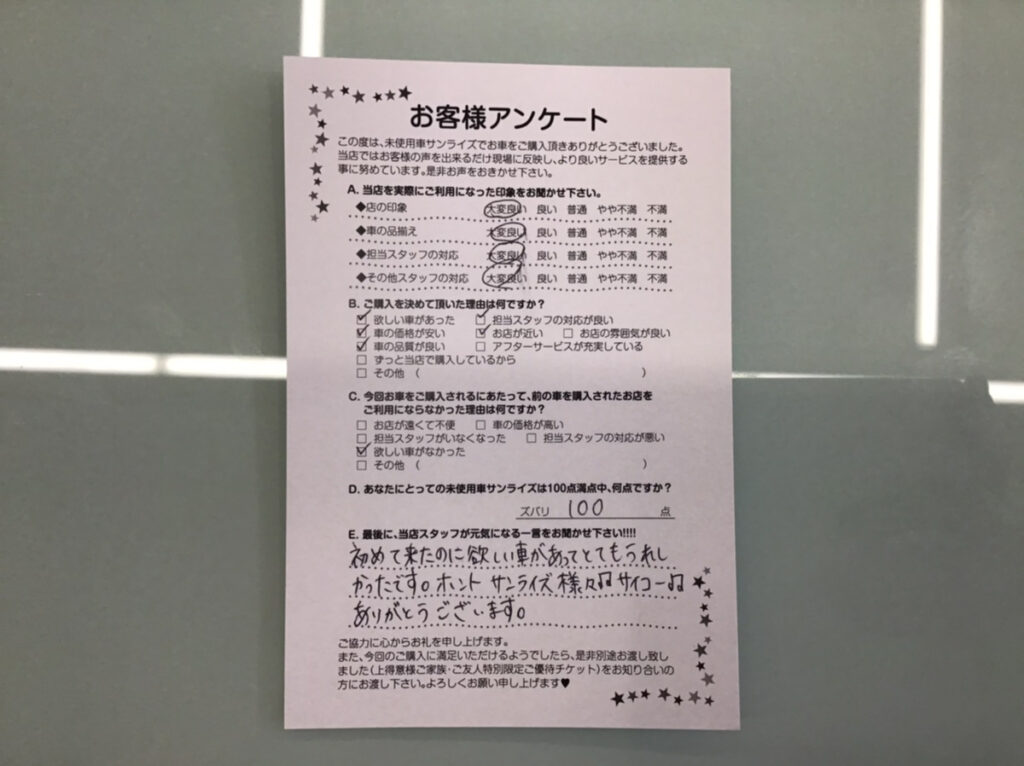 お客様アンケート
この度は、未使用車サンライズでお車をご購入頂きありがとうございました。
当店ではお客様の声を出来るだけ現場に反映し、より良いサービスを提供する
事に努めています。是非お声をおきかせ下さい。
A. 当店を実際にご利用になった印象をお聞かせ下さい。
◆店の印象 大変良い 良い 普通 やや不満 不満
◆車の品揃え 大変良い 良い 普通 やや不満 不満
◆担当スタッフの対応 大変良い 良い 普通 やや不満 不満
◆その他スタッフの対応 大変良い 良い 普通 やや不満 不満
B. ご購入を決めて頂いた理由は何ですか?
☑ 欲しい車があった ☑ 担当スタッフの対応が良い
☑ 車の価格が安い ☑ お店が近い □ お店の雰囲気が良い
☑ 車の品質が良い □ アフターサービスが充実している
□ ずっと当店で購入しているから
□ その他 ( )
C. 今回お車をご購入されるにあたって、前の車を購入されたお店を
ご利用にならなかった理由は何ですか?
□ お店が遠くて不便 □ 車の価格が高い
□ 担当スタッフがいなくなった □ 担当スタッフの対応が悪い
☑ 欲しい車がなかった
□ その他 ( )
D. あなたにとっての未使用車サンライズは100点満点中、何点ですか?
ズバリ 100 点
E. 最後に、当店スタッフが元気になる一言をお聞かせ下さい!!!!
初めて来たのに欲しい車があってとてもうれし
かったです。ホント サンライズ様々♫サイコー♫
ありがとうございます。
ご協力に心からお礼を申し上げます。
また、今回のご購入に満足いただけるようでしたら、是非別途お渡し致し
ました(上得意様ご家族・ご友人特別限定ご優待チケット)をお知り合いの
方にお渡し下さい。よろしくお願い申し上げます♥